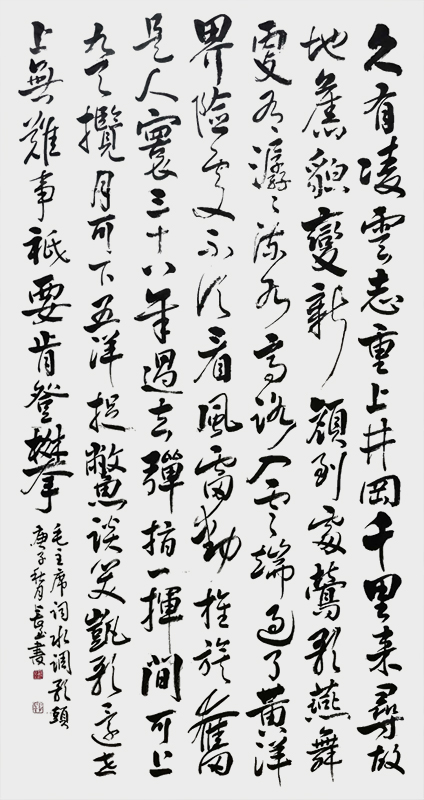 久有凌雲志重上井岡千里来尋故
地舊貌變新顔到處鶯歌燕舞
更有潺潺流水高路入雲端過了黄洋
界險處不須看風雷動旌旗奮
是人寰三十八年過去彈指一揮間可上
九天攬月可下五洋捉鱉談笑凱歌還世
上無難事祇要肯登攀
毛主席词水调歌頭
庚子秋月書